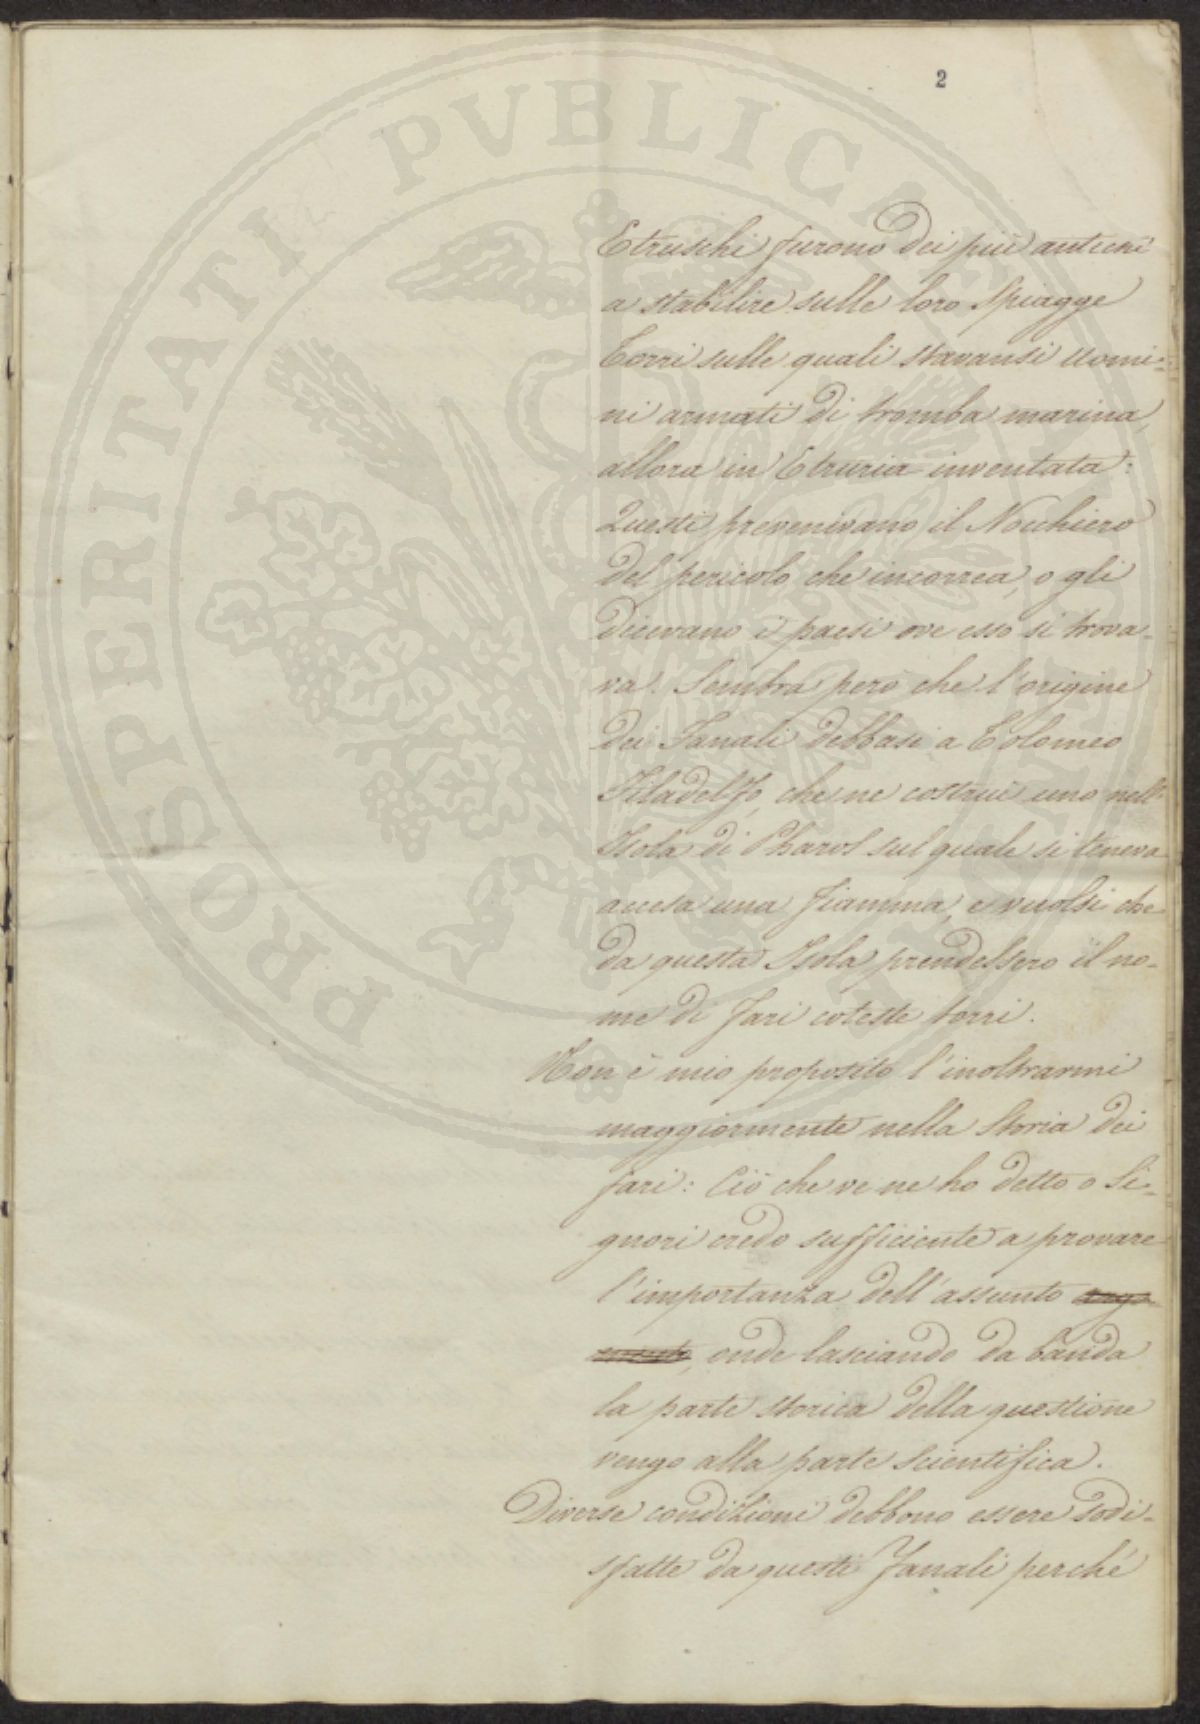 2
PROSPERITATI PVBLICAE
Etruschi furono dei più antichi
a stabilire sulle loro Spiagge
Torri sulle quali stavansi uomi=
ni armati di tromba marina,
allora in Etruria inventata:
Questi prevenivano il Nocchiero
del pericolo che incorrea, o gli
dicevano i paesi ove esso si trova-
va. Sembra però che l'origine
dei Fanali debbasi a Tolomeo
Filadelfo, che ne costruì uno nell'
Isola di Pharos sul quale si teneva
accesa una fiamma, e vuolsi che
da questa Isola prendessero il no-
me di Fari coteste torri.
Non è mio proposito l'inoltrarmi
maggiormente nella Storia dei
fari: Ciò che ve ne ho detto o Si-
gnori credo sufficiente a provare
l'importanza dell'assunto argo
mento, onde lasciando da banda
la parte storica della questione
vengo alla parte Scientifica.
Diverse condizioni debbono essere sodi-
sfatte da questi Fanali perché